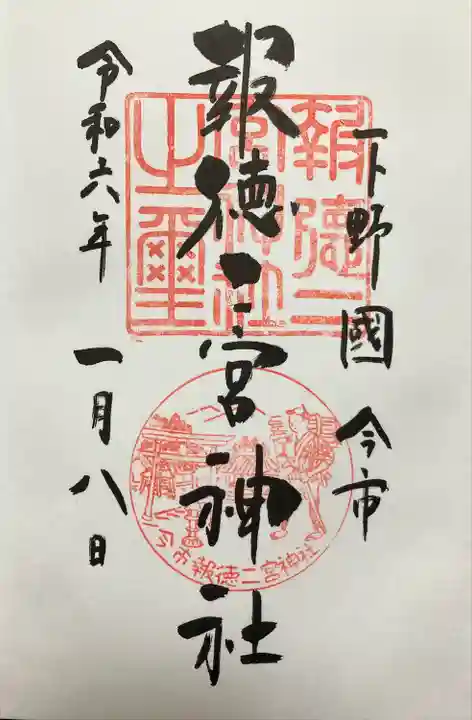 下野國 今市
報徳二宮神社
令和六年 一月八日
報徳二
宮神社
之璽
今市報徳二宮神社